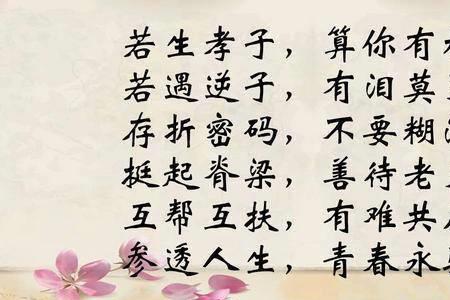 若生孝子，算你有
若遇逆子，有泪莫
存折密码，不要糊
挺起脊梁，善待老
互帮互扶，有难共
参透人生，青春永